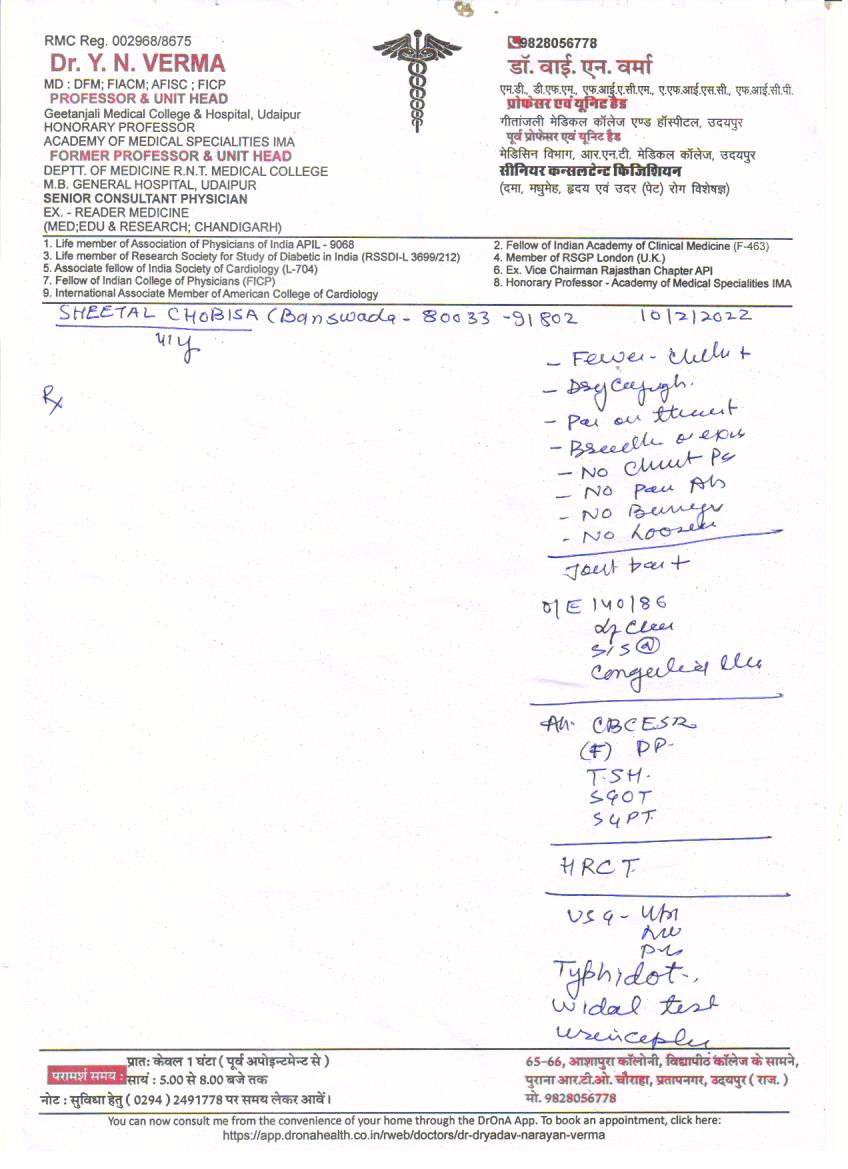 RMC Reg. 002968/8675
Dr. Y. N. VERMA
MD : DFM; FIACM; AFISC ; FICP
PROFESSOR & UNIT HEAD
Geetanjali Medical College & Hospital, Udaipur
HONORARY PROFESSOR
ACADEMY OF MEDICAL SPECIALITIES IMA
FORMER PROFESSOR & UNIT HEAD
DEPTT. OF MEDICINE R.N.T. MEDICAL COLLEGE
M.B. GENERAL HOSPITAL, UDAIPUR
SENIOR CONSULTANT PHYSICIAN
EX. - READER MEDICINE
(MED;EDU & RESEARCH; CHANDIGARH)
9828056778
डॉ. वाई. एन. वर्मा
एम.डी., डी.एफ.एम., एफ.आई.ए.सी.एम., ए.एफ.आई.एस.सी., एफ.आई.सी.पी.
प्रोफेसर एवं यूनिट हैड
गीतांजली मेडिकल कॉलेज एण्ड हॉस्पीटल, उदयपुर
पूर्व प्रोफेसर एवं यूनिट हैड
मेडिसिन विभाग, आर.एन.टी. मेडिकल कॉलेज, उदयपुर
सीनियर कन्सलटेन्ट फिजिशियन
(दमा, मधुमेह, हृदय एवं उदर (पेट) रोग विशेषज्ञ)
1. Life member of Association of Physicians of India APIL - 9068
3. Life member of Research Society for Study of Diabetic in India (RSSDI-L 3699/212)
5. Associate fellow of India Society of Cardiology (L-704)
7. Fellow of Indian College of Physicians (FICP)
9. International Associate Member of American College of Cardiology
2. Fellow of Indian Academy of Clinical Medicine (F-463)
4. Member of RSGP London (U.K.)
6. Ex. Vice Chairman Rajasthan Chapter API
8. Honorary Professor - Academy of Medical Specialities IMA
SHEETAL CHOBISA (Banswada - 80033 -91802 10/2/2022
41y
Rx
- Fewer -
- Dry Cough.
-
-
- No
- No Pain
- No
- No
Joint pain +
O/E 140/86
CBC ESR
(F) PP-
T.SH.
SGOT
SGPT
HRCT.
USG -
Typhidot-.
Widal test
परामर्श समय : प्रातः केवल 1 घंटा ( पूर्व अपोइन्टमेन्ट से )
सायं : 5.00 से 8.00 बजे तक
नोट : सुविधा हेतु ( 0294 ) 2491778 पर समय लेकर आवें।
65-66, आशापुरा कॉलोनी, विद्यापीठ कॉलेज के सामने,
पुराना आर.टी.ओ. चौराहा, प्रतापनगर, उदयपुर ( राज. )
मो. 9828056778
You can now consult me from the convenience of your home through the DrOnA App. To book an appointment, click here:
https://app.dronahealth.co.in/rweb/doctors/dr-dryadav-narayan-verma